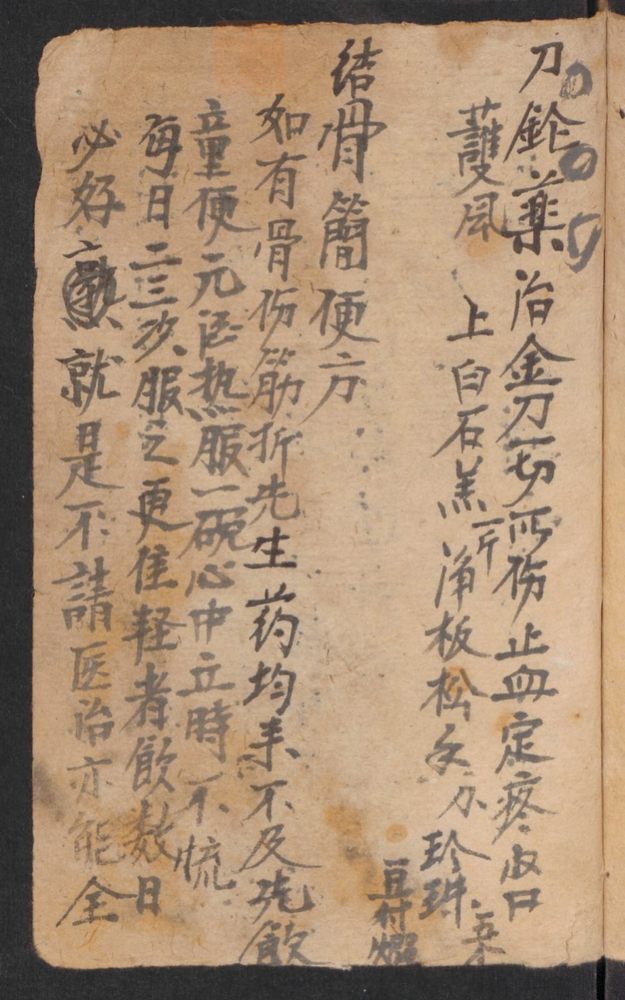 刀鈊藥治金刀一切所伤止血定疼収口
護風 上白石羔一斤 净板松香 刀 珍珠五个
豆付煅
结骨簡便方
如有骨伤筋折先生药均未不及先飲
童便元酒热服一碗心中立時不慌
每日二三次服之更佳轻者飲数日
必好 就是不請医治亦能全